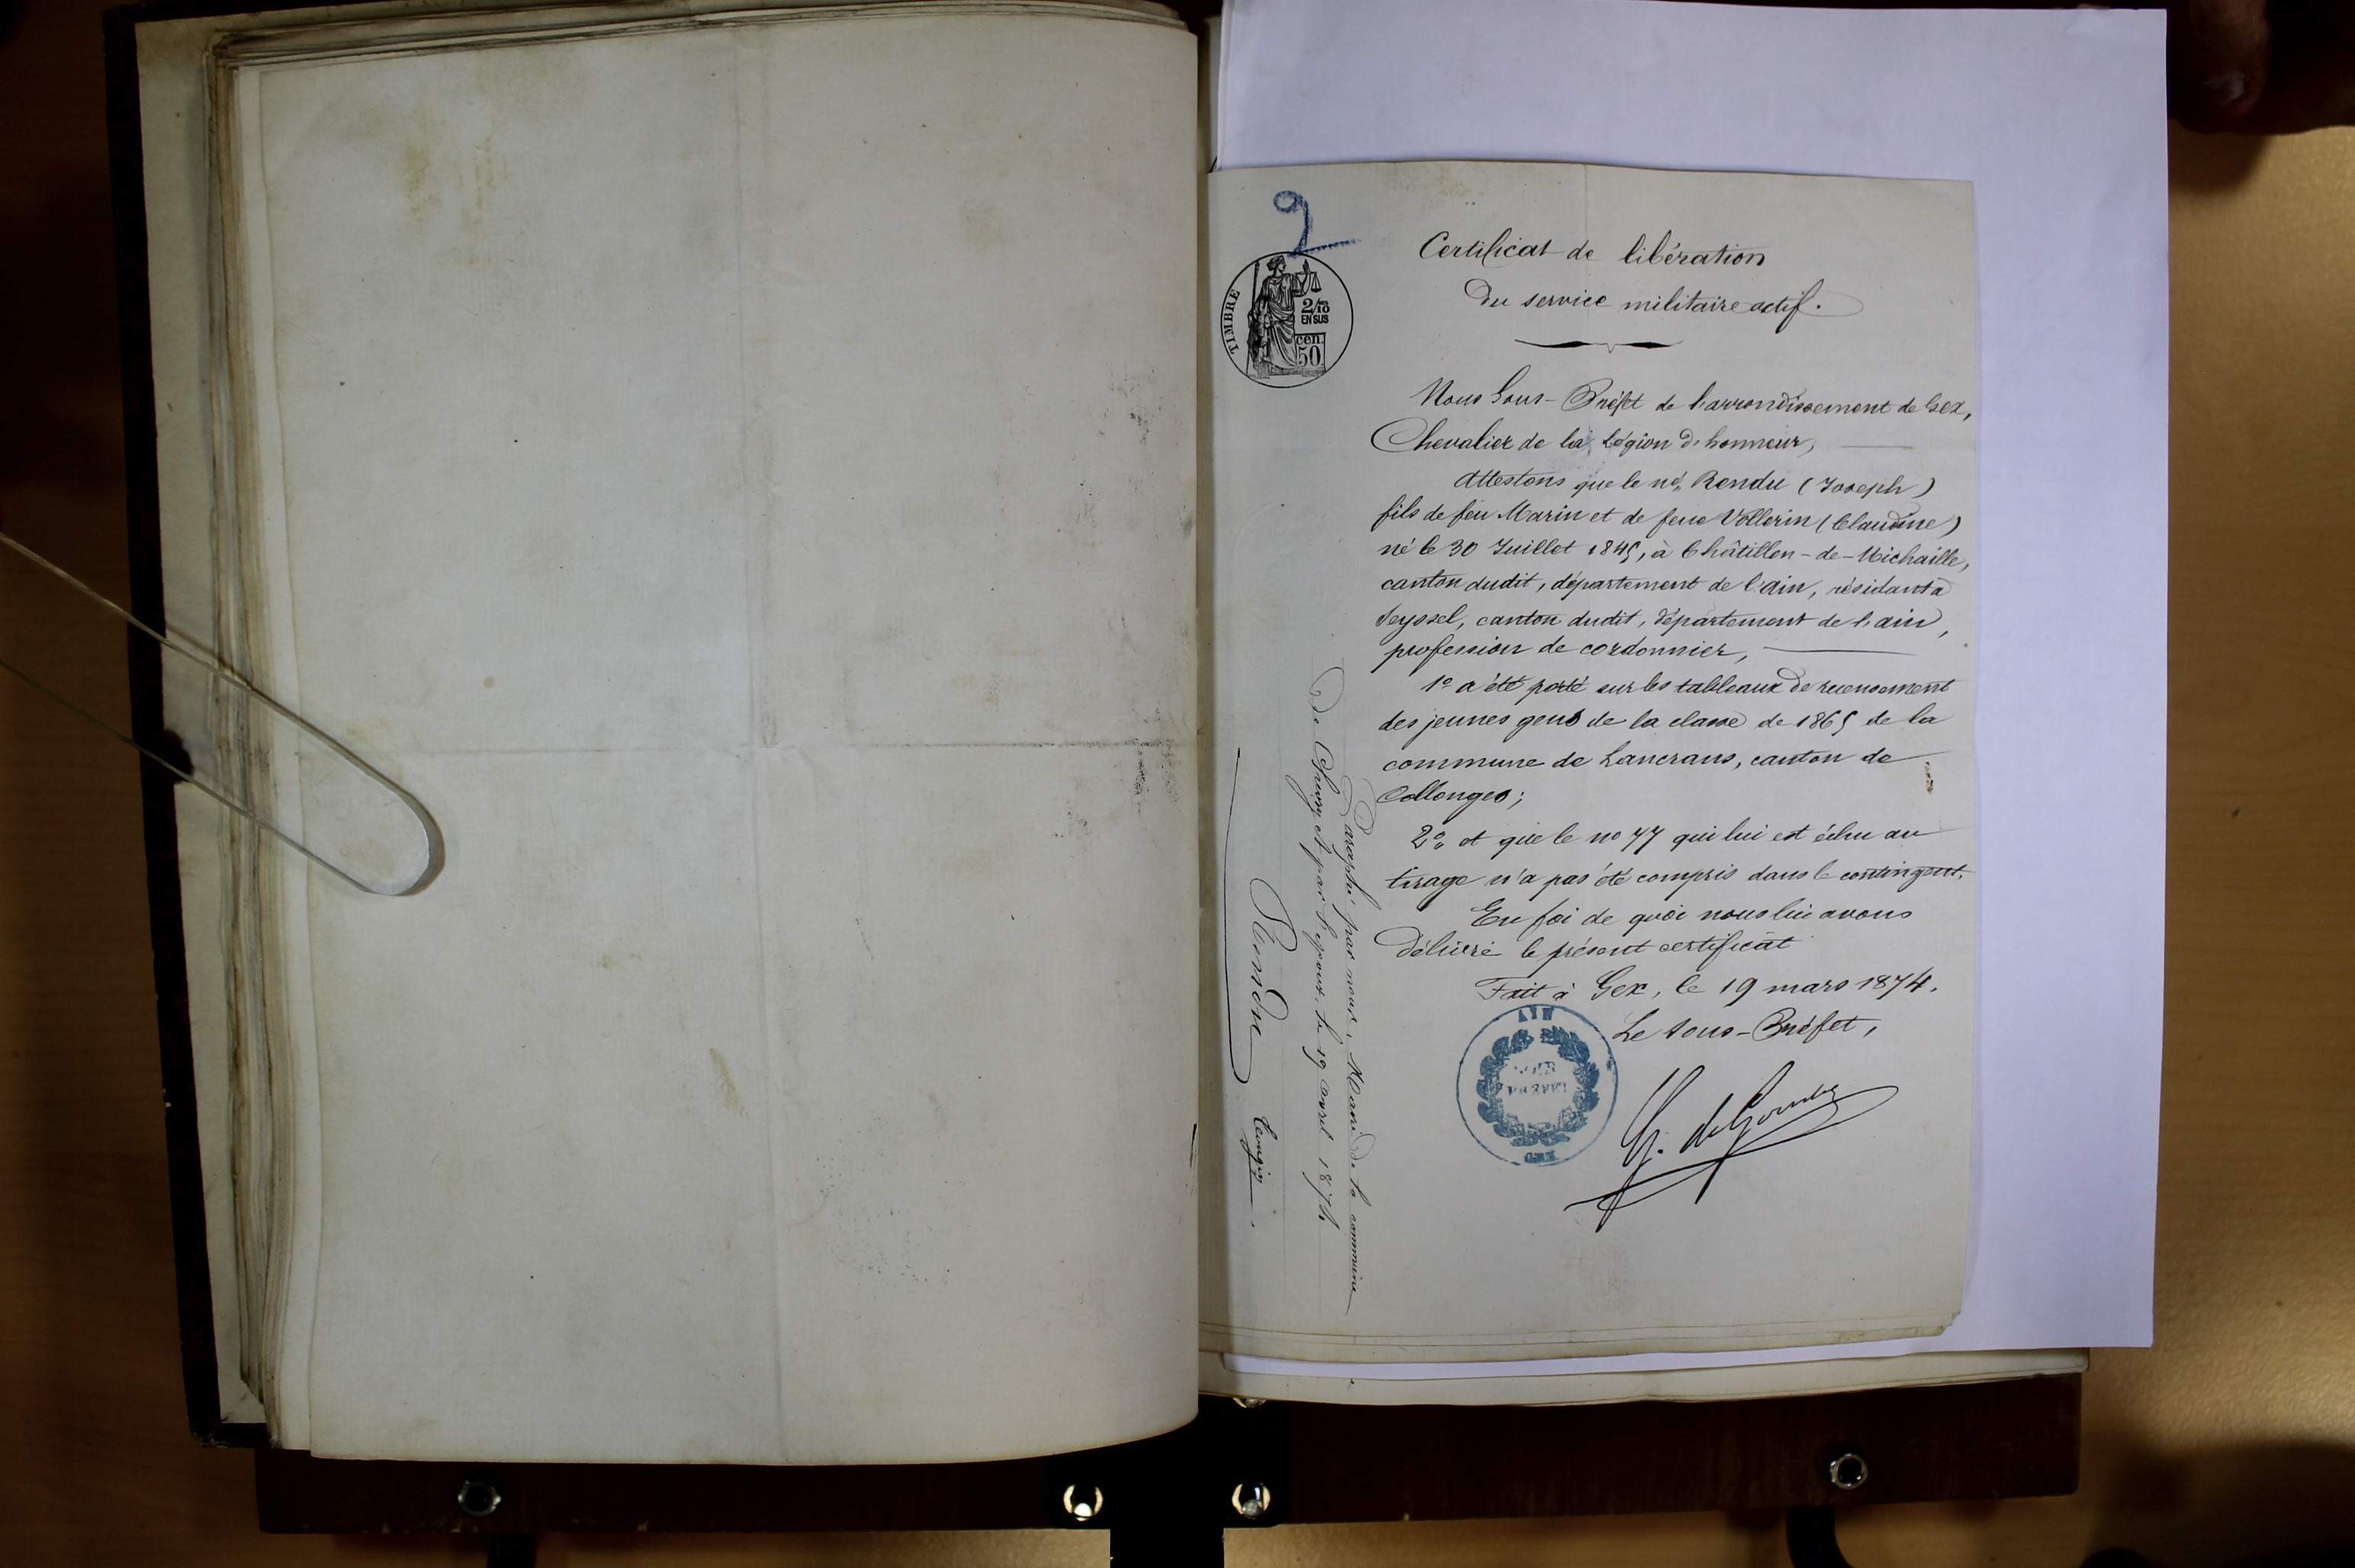 2
TIMBRE
2/10
EN SUS
cen.
50
Certificat de libération
du service militaire actif.
Nous Sous-Préfet de l'arrondissement de Gex,
Chevalier de la Légion d'honneur,
Attestons que le né Rendu (Joseph)
fils de feu Marin et de feue Vollerin (Claudine)
né le 30 Juillet 1845, à Châtillon-de-Michaille,
canton dudit, département de l'ain, résidant à
Seyssel, canton dudit, département de l'ain,
profession de cordonnier,
1º a été porté sur les tableaux de recensement
des jeunes gens de la classe de 1865 de la
commune de Lancrans, canton de
Collonges;
2º et que le nº 77 qui lui est échu au
tirage n'a pas été compris dans le contingent.
En foi de quoi nous lui avons
délivré le présent certificat
Fait à Gex, le 19 mars 1874.
Le Sous-Préfet,
AIN
GEX
Paraphé par nous, Maire de la commune
de et par l'époux, le 19 avril 1874
Rendu